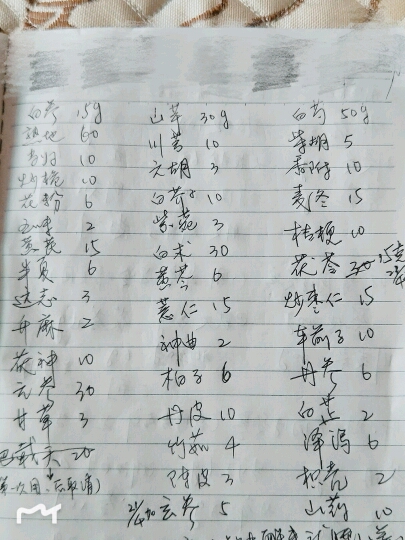 白参 15g 山芋 30g 白芍 50g
熟地 60 川芎 10 柴胡 5
当归 10 元胡 3 香附 10
炒栀 10 白芥子 10 麦冬 15
花粉 6 紫菀 3 桔梗 10
2 白术 30 茯苓 30 15克
黄芪 15 黄芩 6 炒枣仁 15
半夏 6 薏仁 15 车前子 10
远志 3 神曲 2 丹参 6
升麻 2 柏子 6 白芷 2
茯神 10 丹皮 10 泽泻 6
元参 30 竹茹 4 枳壳 2
甘草 3 陈皮 3 山药 10
巴戟天 20 加玄参 5